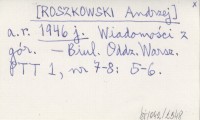 [ROSZKOWSKI Andrzej]
a.r. 1946 j. Wiadomości z
gór. — Biul. Oddz. Warsz.
PTT 1, nr 7-8: 5-6.